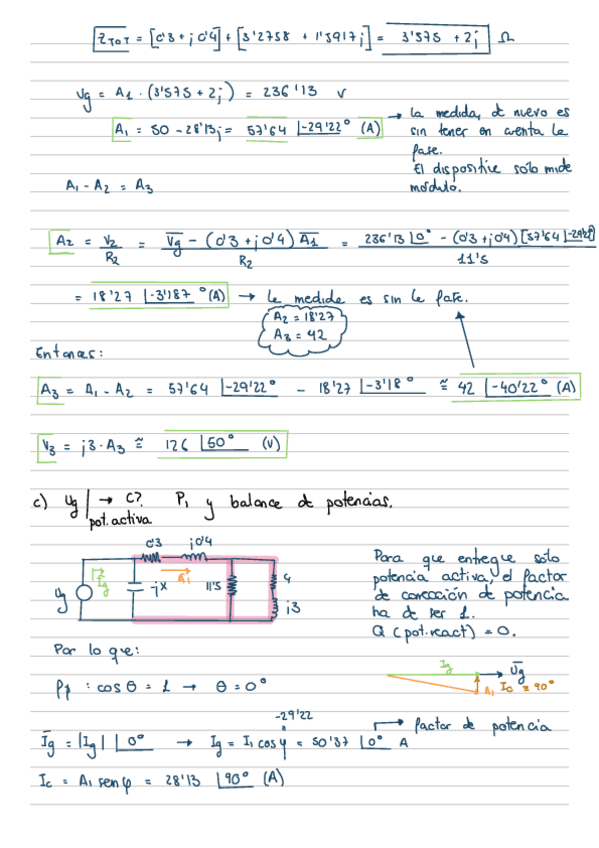 Z_TOT = [0'3 + j0'4] + [3'2758 + 1'5917j] = 3'575 + 2j Ω
Ug = A₁ · (3'575 + 2j) = 236'13 V
A₁ = 50 - 28'13j = 57'64 ∠-29'22° (A) → La medida, de nuevo es
sin tener en cuenta la
fase.
El dispositivo solo mide
módulo.
A₁ - A₂ = A₃
A₂ = V₂/R₂ = (Vg - (0'3 + j0'4) A₁)/R₂ = (236'13 ∠0° - (0'3 + j0'4)[57'64 ∠-29'22°])/11'5
= 18'27 ∠-3'187° (A) → La medida es sin la fase.
A₂ = 18'27
A₃ = 42
Entonces:
A₃ = A₁ - A₂ = 57'64 ∠-29'22° - 18'27 ∠-3'18° ≅ 42 ∠-40'22° (A)
V₃ = j3·A₃ ≅ 126 ∠50° (V)
c) Ug | → C? P₁ y balance de potencias.
pot.activa
0'3 j0'4
Ig A₁ 4
Ug -jx 11'5 j3
Para que entregue solo
potencia activa, el factor
de corrección de potencia
ha de ser 1.
Q (pot.react) = 0.
Por lo que:
cos θ = 1 → θ = 0°
Ig Ug
A₁ Ic = 90°
-29'22 → factor de potencia
Ig = |Ig| ∠0° → Ig = I₁ cos φ = 50'37 ∠0° A
Ic = A₁ sen φ = 28'13 ∠90° (A)